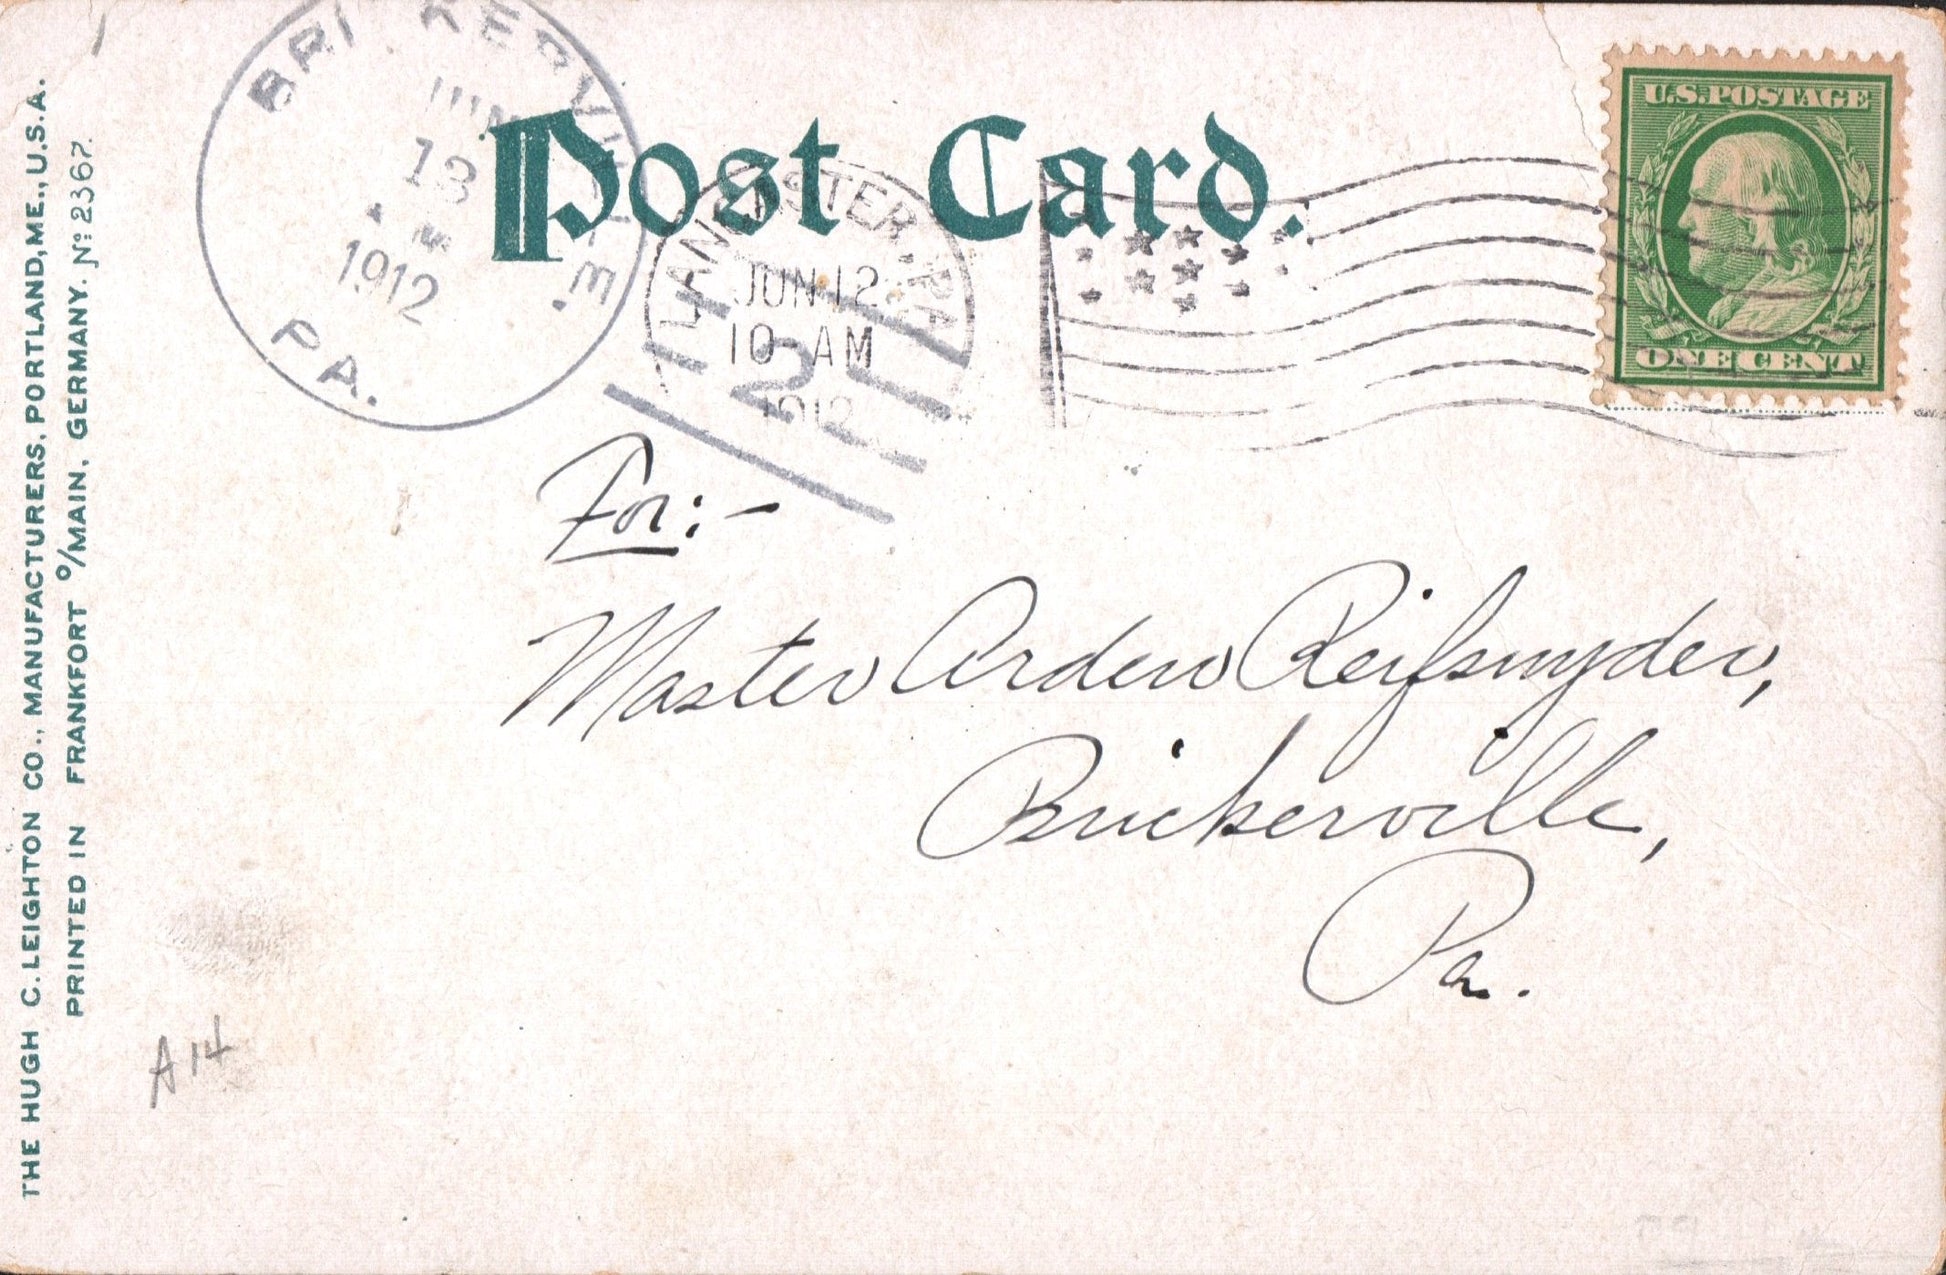 THE HUGH C. LEIGHTON CO., MANUFACTURERS, PORTLAND, ME., U.S.A.
PRINTED IN FRANKFORT o/MAIN, GERMANY. No 2367.
BRICKERVILLE.
JUN
13
1912
PA.
Post Card.
LANCASTER, PA.
JUN 12
10-AM
1912
2
U.S. POSTAGE
ONE CENT
For:-
Master Arden Reifsnyder,
Brickerville,
Pa.
A14